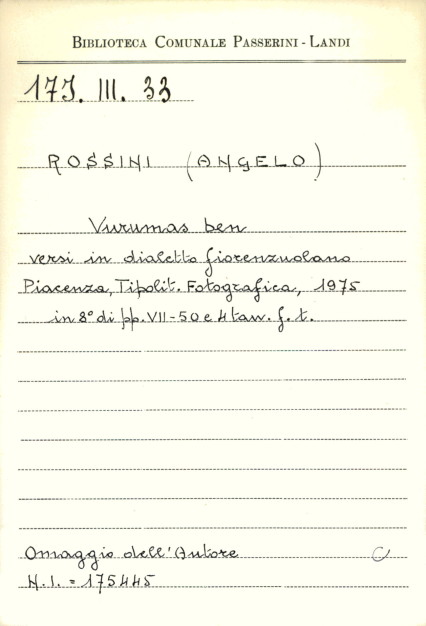 BIBLIOTECA COMUNALE PASSERINI - LANDI
17J. III. 33
ROSSINI (ANGELO)
Vurumas ben
versi in dialetto fiorenzuolano
Piacenza, Tipolit. Fotografica, 1975
in 8° di pp. VII-50 e 4 tav. f. t.
Omaggio dell'Autore C
N.I. = 175445